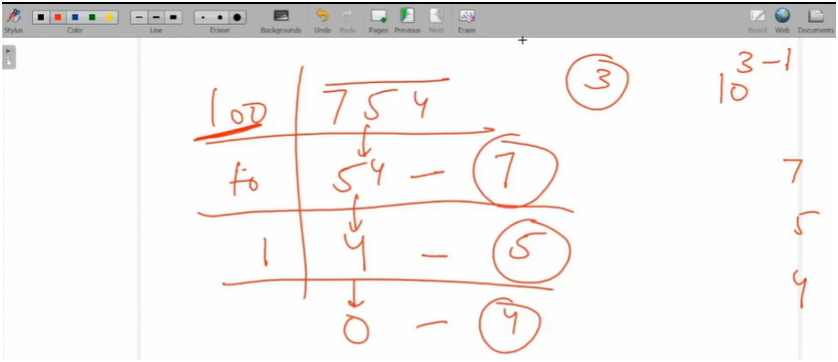 Stylus Color Line Eraser Backgrounds Undo Redo Pages Previous Next Erase Board Web Documents
3
10^{3-1}
100 754
10 54 - 7
7
1 4 - 5
5
0 - 4
4